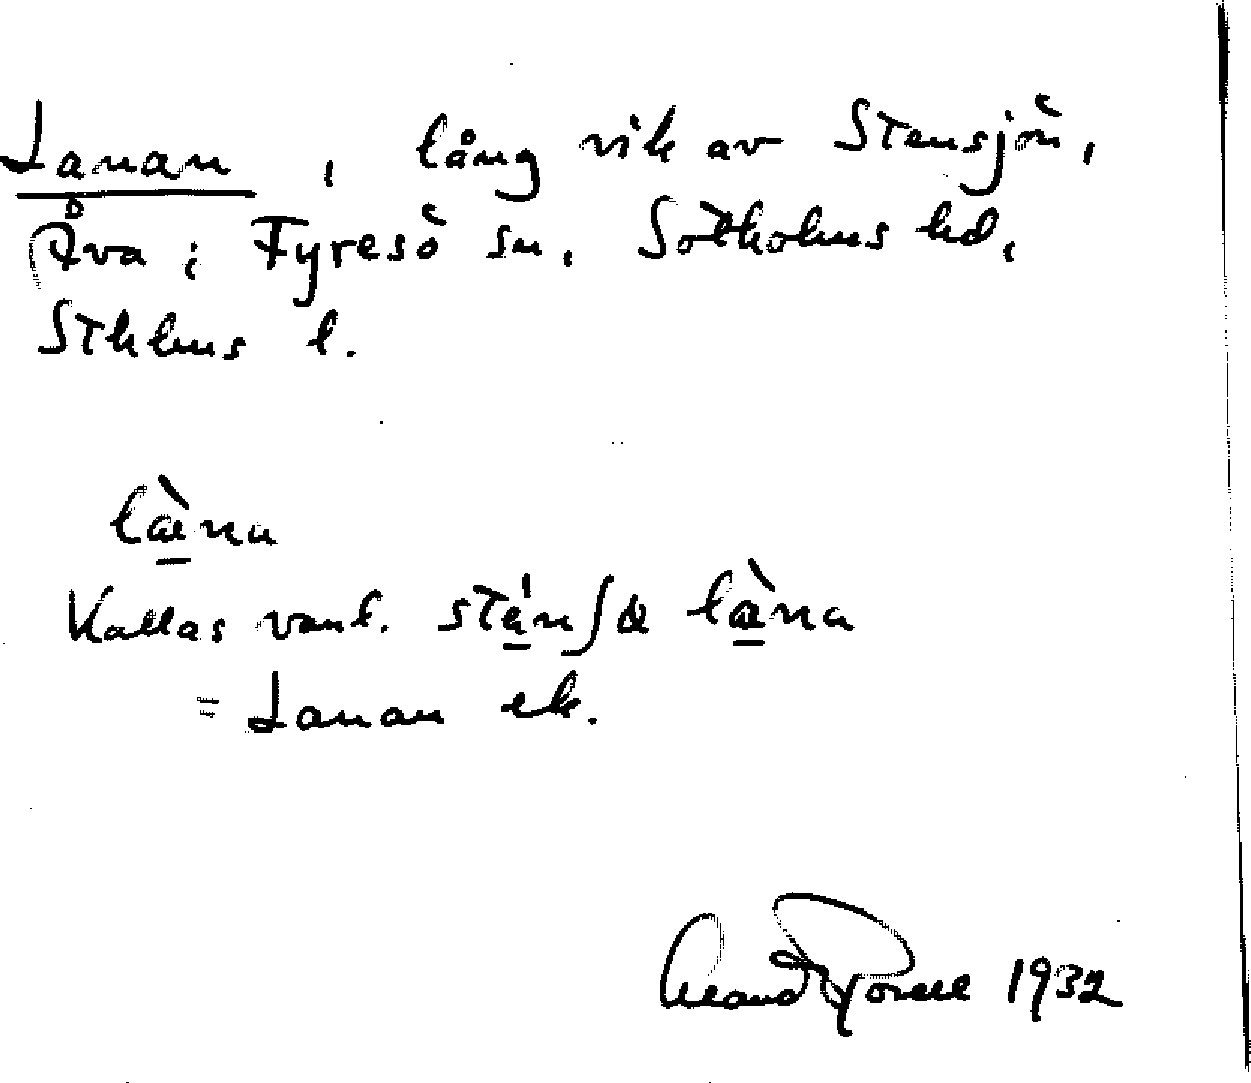 Lanan, lång vik av Stensjön,
Åva i Tyresö sn, Sotholms hd,
Sthlms l.
læ̠̀na
Kallas vanl. stǽ̠nʃø læ̠̀na
= Lanan ek.
1932